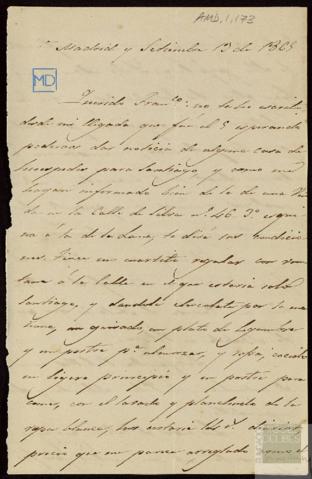 AMD, 1, 173
Madrid y Setiembre 13 de 186
MD
Querido Franco: no te he escrito
desde mi llegada que fué el 8 esperando
poderos dar noticia de alguna casa de
huespedes para Santiago, y como me
hayan informado bien de la de una
en la Calle de Silva nº 46. 3º esqui
na á la de la Luna, te diré sus condicio
nes. Tiene un cuartito regular con ven
tana á la Calle en el que estaria solo
Santiago, y dandole chocolate por la ma
ñana, un guisado, un plato de legumbre
y un postre pª almorzar, y sopa, cocido
un ligero principio y un postre para
comer, con el lavado y planchado de la
ropa blanca,
precio que me parece arreglado